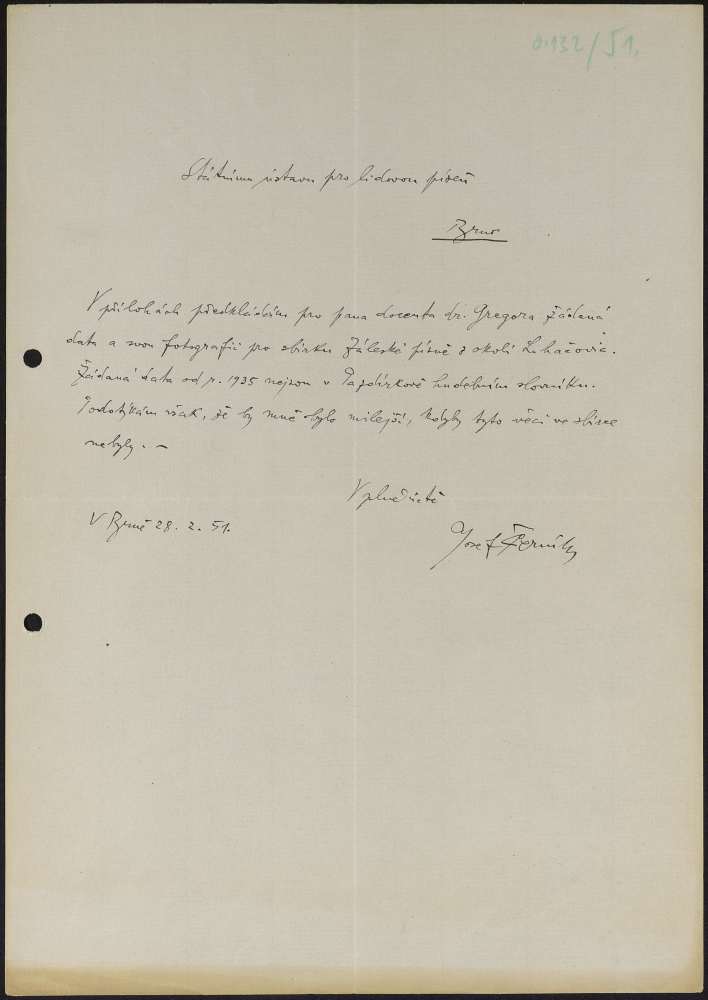 0.132/51.
Státnímu ústavu pro lidovou píseň
Brno
V přílohách předkládám pro pana docenta dr. Gregora žádaná
data a svou fotografii pro sbírku Záleské písně z okolí Luhačovic.
Žádaná data od r. 1935 nejsou v Pazdírkově hudebním slovníku.
Podotýkám však, že by mně bylo milejší, kdyby tyto věci ve sbírce
nebyly. –
V plné úctě
V Brně 28. 2. 51.
Josef Černík